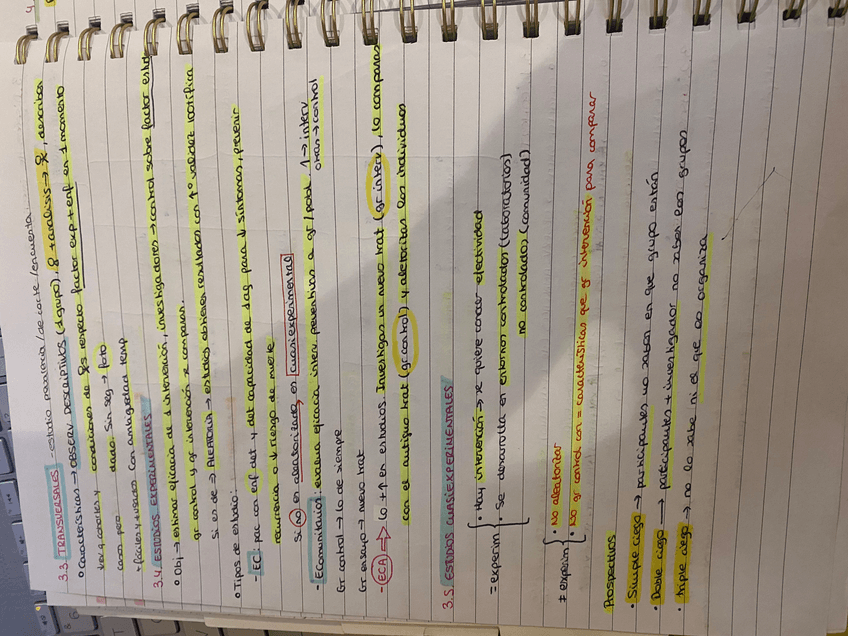 3.3. TRANSVERSALES - estudio prevalencia / de corte / encuesta.
• Características → OBSERV DESCRIPTIVOS (1 grupo), & + análisis →
condiciones de respecto factor exp + enf en 1 momento
dado. Sin seg → foto
caros, pero
• fáciles y usados. Con ambigüedad temp
3.4. ESTUDIOS EXPERIMENTALES
• Obj → estimar eficacia de 1 intervención, investigadores → control sobre factor estd
gr control y gr intervención se comparar.
Si es de → ALEATORIO → estudios obtienen resultados con ↑ validez científica
• Tipos de estudio:
- EC: pac con enf det y det capacidad de 1 ag para ↓ síntomas, prevenir
recurrencia o ↓ riesgo de muerte
Si NO es aleatorizado, es cuasiexperimental
- E comunitarios: evalúa eficacia interv preventivas a gr/pobl. 1 → interv
otras → control
Gr control → lo de siempre
Gr ensayo → nuevo trat
- ECA ⇒ lo + ↑ en estudios. Investigas un nuevo trat (gr interv), lo comparas
con el antiguo trat (gr control) y aletorizas los individuos
3.5. ESTUDIOS CUASIEXPERIMENTALES
= experim { • Hay intervención → se quiere conocer efectividad
• Se desarrolla en entornos controlados (laboratorios)
no controlados (comunidad)
≠ experim { • No aleatorizar
• No gr control con = características que gr intervención para comparar
Prospectivos
• Simple ciego → participantes no saben en que grupo están
• Doble ciego → participantes + investigador no saben los grupos
• Triple ciego → no lo sabe ni el que lo organiza